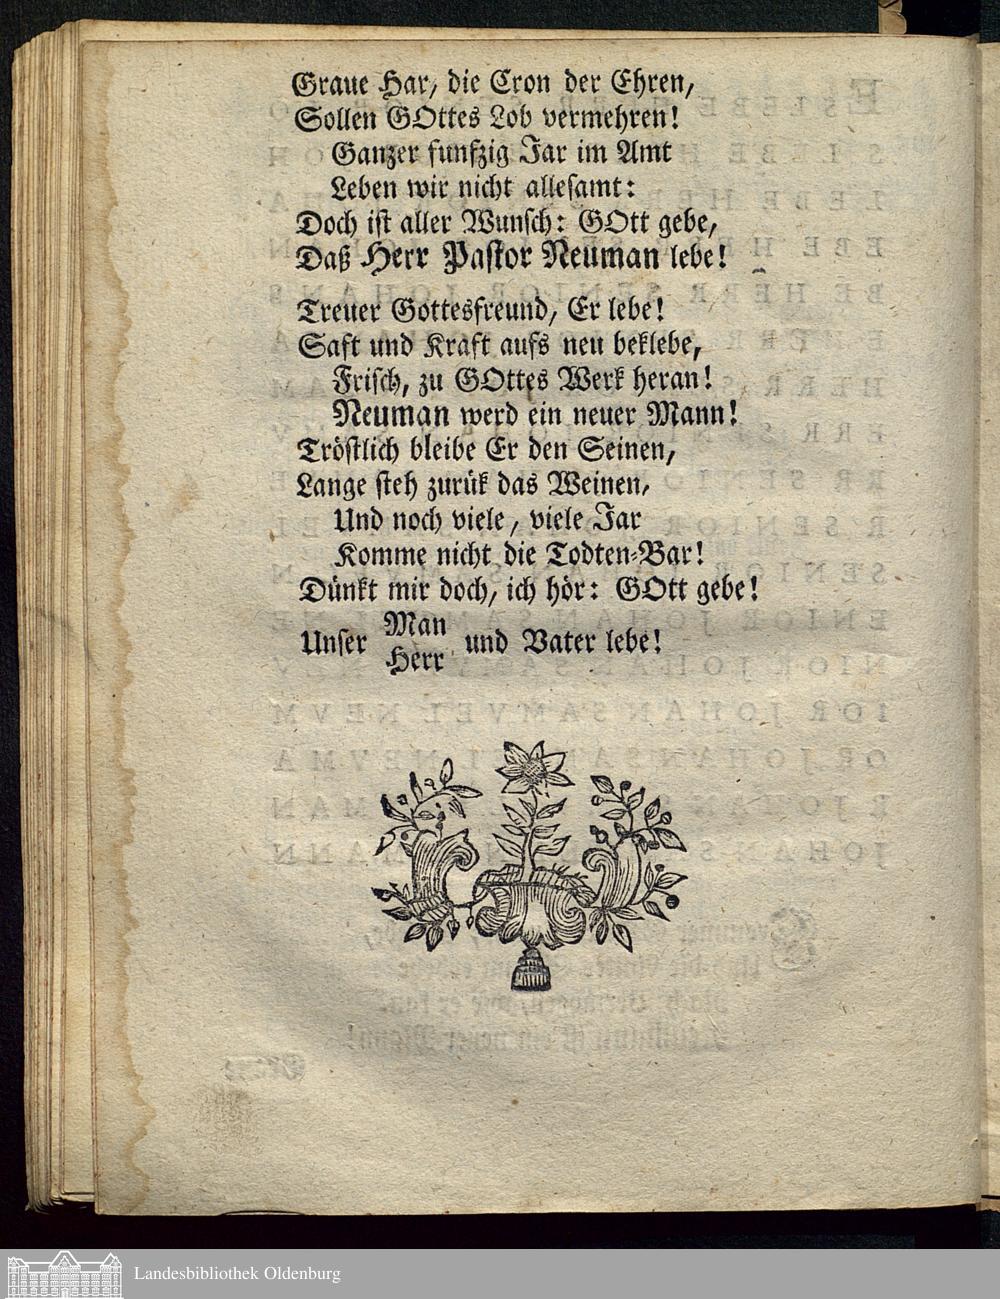 Graue Har, die Cron der Ehren,
Sollen GOttes Lob vermehren!
Ganzer funfzig Jar im Amt
Leben wir nicht allesamt:
Doch ist aller Wunsch: GOtt gebe,
Daß Herr Pastor Neuman lebe!
Treuer Gottesfreund, Er lebe!
Saft und Kraft aufs neu beklebe,
Frisch, zu GOttes Werk heran!
Neuman werd ein neuer Mann!
Tröstlich bleibe Er den Seinen,
Lange steh zurük das Weinen,
Und noch viele, viele Jar
Komme nicht die Todten-Bar!
Dünkt mir doch, ich hör: GOtt gebe!
Unser Man
Herr und Vater lebe!
Landesbibliothek Oldenburg